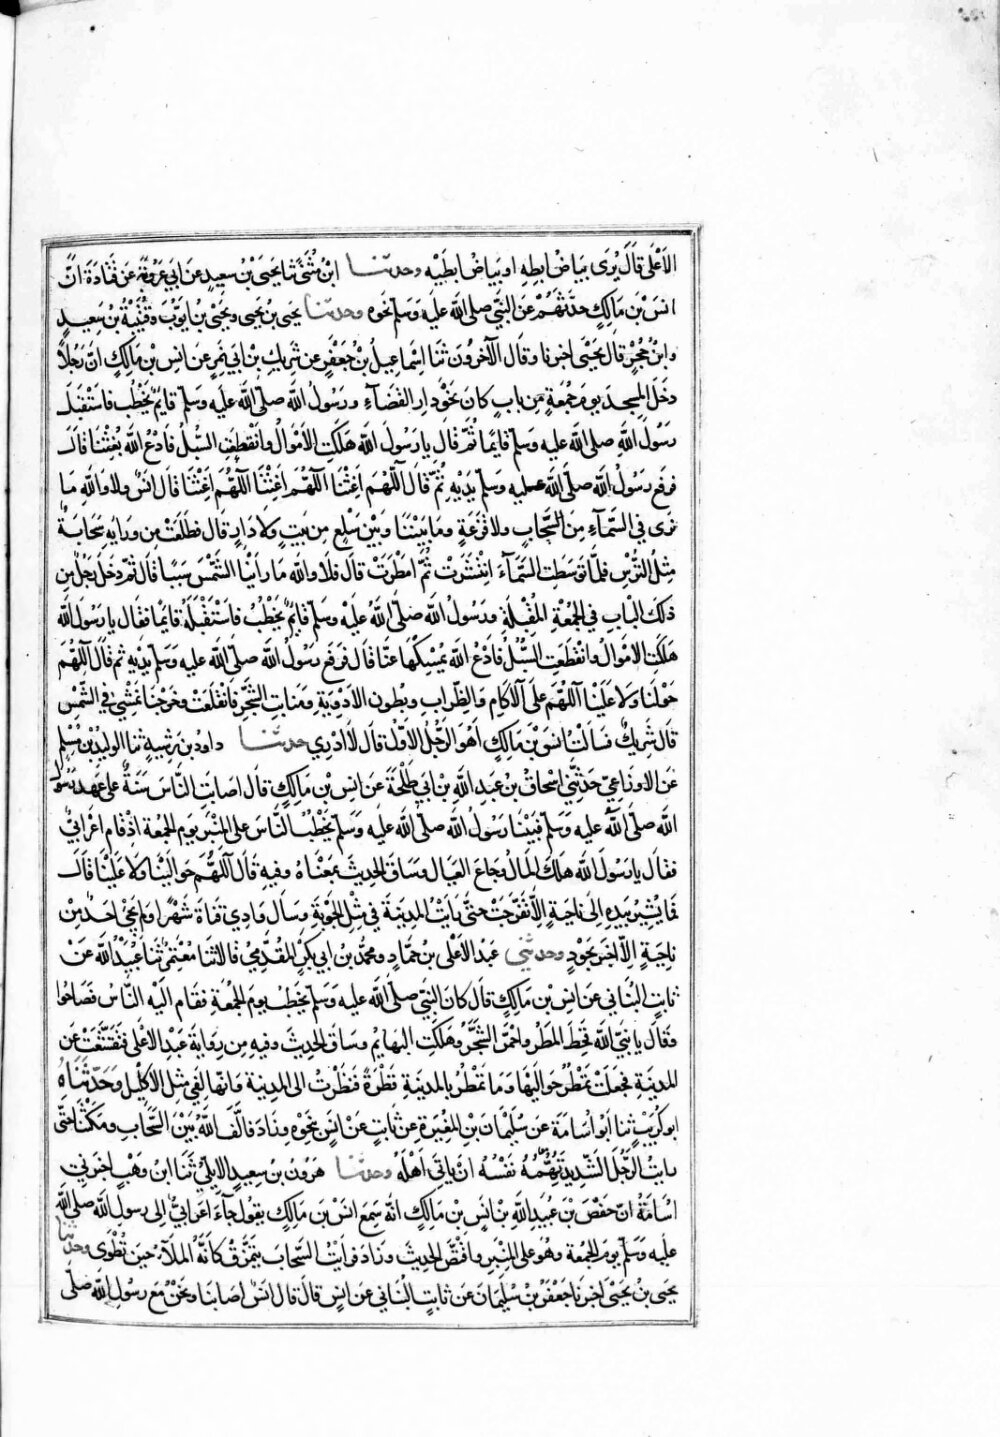 الاَعْلَى قَالَ يُرَى بَيَاضُ اِبطِهِ او بَيَاضُ ابطَيْه وحدثنا ابْنُ مُثَنَّى ثنا يَحيَى بْنُ سَعِيدٍ عَن ابى عَرُوبَةَ عَن قَتَادَةَ انَّ
انَسَ بْنَ مَالِكٍ حدَّثَهُمْ عَنِ النَّبِيِّ صلى الله عليه وَسَلم نحَوه وحدثنا يحيى بن يَحيى وَيحَيْى بْنُ ايوُّبَ وقُتَيْبَةُ بْنُ سَعِيدٍ
وابْنُ حُجْرٍ قَالَ يَحْيَى اخبرنا وقَالَ الآخروُنَ ثَنَا اِسْمَاعِيلُ بْنُ جَعْفَرٍ عَن شَرِيكِ بْنِ ابي نمِرٍ عَن انسِ بْنِ مَالِكٍ انَّ رَجُلاً
دخَلَ المسجدَ يومَ جُمُعَةٍ مِن بابٍ كانَ نحَوْ دارِ القَضَآءِ ورَسُولُ الله صلّى الله عليه وَسَلم قايمٌ يخَطُب فاسْتَقبَلَ
رَسُولَ اللهِ صلى الله عليه وسَلّم قايمًا ثُمَّ قَال يا رَسُولَ الله هَلَكتِ الاَمْوَالُ وانْقطعَتِ السُّبُلُ فادْعُ الله يُغِثْنَا قَالَ
فرفعَ رَسُولُ الله صلّى الله عليه وَسَلّم يَدَيْهِ ثُمّ قَال اَللّهُمَّ اَغِثْنَا اَللّهُمَّ اَغِثْنَا اَللّهُمَّ اَغِثْنَا قَال انسٌ ولا وَاللهِ مَا
نَرى في السَّمآءِ مِنَ السَّحابٍ ولا قزَعَةٍ وما بَيْنَنَا وَبَيْنَ سَلْعٍ مِن بَيتٍ ولا دَارٍ قَال فطَلَعَتْ مِن ورَايهِ سَحَابَةٌ
مِثلُ التُّرْسِ فلمَّا توَسَطتِ السَّمآءَ انْتَشَرَتْ ثُمّ امْطَرَتْ قال فَلاَ واللهِ مَا رَاَينَا الشَّمْسَ سَبتًا قَال ثم دخَلَ رَجُلٌ مِن
ذلكَ البَابِ في الجُمُعَةِ المُقْبِلَةِ ورَسُولُ الله صَلى الله عَلَيْه وَسَلّم قَايمٌ يخَطُبُ فاسْتَقْبَلَهُ قَايمًا فقَال يا رَسُولَ الله
هَلَكَتِ الاَمْوَالُ وانقطَعَتِ السُّبُلُ فادْعُ الله يُمْسِكْهَا عَنَّا قَال فرَفع رسُولُ الله صلّى الله عليه وَسَلّم يدَيْهِ ثم قَال اَللّهُمَّ
حَوْلَنَا وَلا عَلَيْنَا اَللّهُمَّ عَلى الآكَامِ وَالظِّرَابِ وبُطُونِ الاَدْوِيَةِ وَمَنابتِ الشَّجَرِ فانْقَلَعَتْ وَخرَجْنَا نَمْشِي في الشَّمْسِ
قَال شَرِيكٌ فسَالَتُ انسَ بْنَ مَالِكٍ اَهُوَ الرَّجُلُ الاَوَّلُ قَال لا اَدْرِي حدثنا داود بنُ رشَيدٍ ثنا الوليدُ بْنُ مُسْلِمٍ
عَن الاوزَاعِي حَدثنِي اِسْحاقُ بن عَبدِ اللهِ بْنِ ابي طَلْحَةَ عَن انسِ بْنِ مَالِكٍ قَال اصَابتِ النَّاسَ سَنَةٌ على عَهدِ رسُولِ
الله صلّى الله عليه وَسَلّم فبَيْنَا رَسُولُ الله صلّى الله عليه وَسَلّم يَخْطُبُ النَّاسَ على المِنبَرِ يَومَ الجمُعَة اذْ قَام اعْرَابيٌّ
فقَال يا رَسُولَ الله هَلَكَ المَالُ وجَاعَ العيَالُ وسَاقَ الحَدِيثَ بمعْنَاهُ وفيهِ قَال اَللّهُمَّ حوَالَيْنَا ولا عَلَيْنَا قَالَ
فمَا يُشِيرُ بِيَدِهِ اِلى نَاحِيَةٍ اِلاَّ تفرَّجَتْ حَتَّى رَايْتُ المَدِينَةَ في مِثْلِ الجَوْبَةِ وسَالَ وَادِي قَنَاةَ شَهْرًا ولم يجَيْ احَدٌ مِنْ
ناحِيَةٍ اِلاّ اخبَر بجَوْدٍ وحدثني عَبْدُ الاَعْلى بن حمَّادٍ ومحَمَّدُ بن ابي بكْرٍ المُقَدَّمِيُّ قالا ثنا مُعْتَمِرٌ ثنا عُبَيْدُ الله عَنْ
ثابتٍ البُنَاني عَن انسِ بْن مَالِكٍ قَال كَان النَّبيُّ صلى الله عليه وَسَلم يخَطبُ يومَ الجمُعَةِ فقَامَ اِلَيْهِ النَّاسُ فَصَاحُوا
وقَالُوا يا نبيَّ الله قحِطَ المَطَرُ واحْمَرَّ الشَّجَرُ وهَلَكَتِ البَهايمُ وسَاقَ الحَدِيثَ وفيهِ مِن رِوايَةِ عَبْدِ الاَعْلى فتَقَشَّعَتْ عَن
المَدينَةِ فجَعَلَتْ تمَطُرُ حَوالَيْهَا وَمَا تمَطُرُ بالمَدينَةِ قَطْرَةٌ فنَظَرْتُ الى المَدِينَةِ وَانهَا لَفِي مِثلِ الاِكْلِيلِ وَحَدَّثَنَاهُ
ابو كُرَيْبٍ ثنا ابو اُسَامَةَ عَن سُلَيْمَانَ بْنِ المُغِيرَةِ عَن ثَابتٍ عَن انَسٍ بنَحْوِهِ وزَادَ فالَّفَ اللهُ بَيْنَ السَّحَابِ ومَكَثْنَا حتَّى
رايتُ الرَّجُلَ الشَّدِيدَ تُهِمُّهُ نَفْسُهُ انْ ياتِيَ اَهْلَهُ وحدثنا هرُونُ بنُ سعِيدٍ الاَيلِيُّ ثَنَا ابنُ وَهْبٍ اخبَرني
اُسَامَةُ انَّ حَفْصَ بْنَ عُبَيدِ اللهِ بْن انَسِ بْنِ مَالِكٍ حَدَّثَه انَّه سِمعَ انسَ بْنَ مَالِكٍ يقولُ جَآءَ اعْرَابيٌّ اِلى رسولِ الله صلى الله
عليه وَسَلّم يومَ الجمُعَة وهُوَ على المِنبَرِ واقْتَصَّ الحَدِيثَ وزَادَ فرَايتُ السَّحابَ يتمَزَّقُ كَانَّهُ المُلاَءُ حِينَ تُطْوَى وحدثنا
يحيَى بْنُ يَحْيَى اخبرنَا جَعْفَرُ بْنُ سُلَيْمَانَ عَن ثابتٍ البُنَاني عَن انسٍ قَالَ قَال انسٌ اصَابنَا ونَحْنُ مَعَ رسُولِ الله صلّى